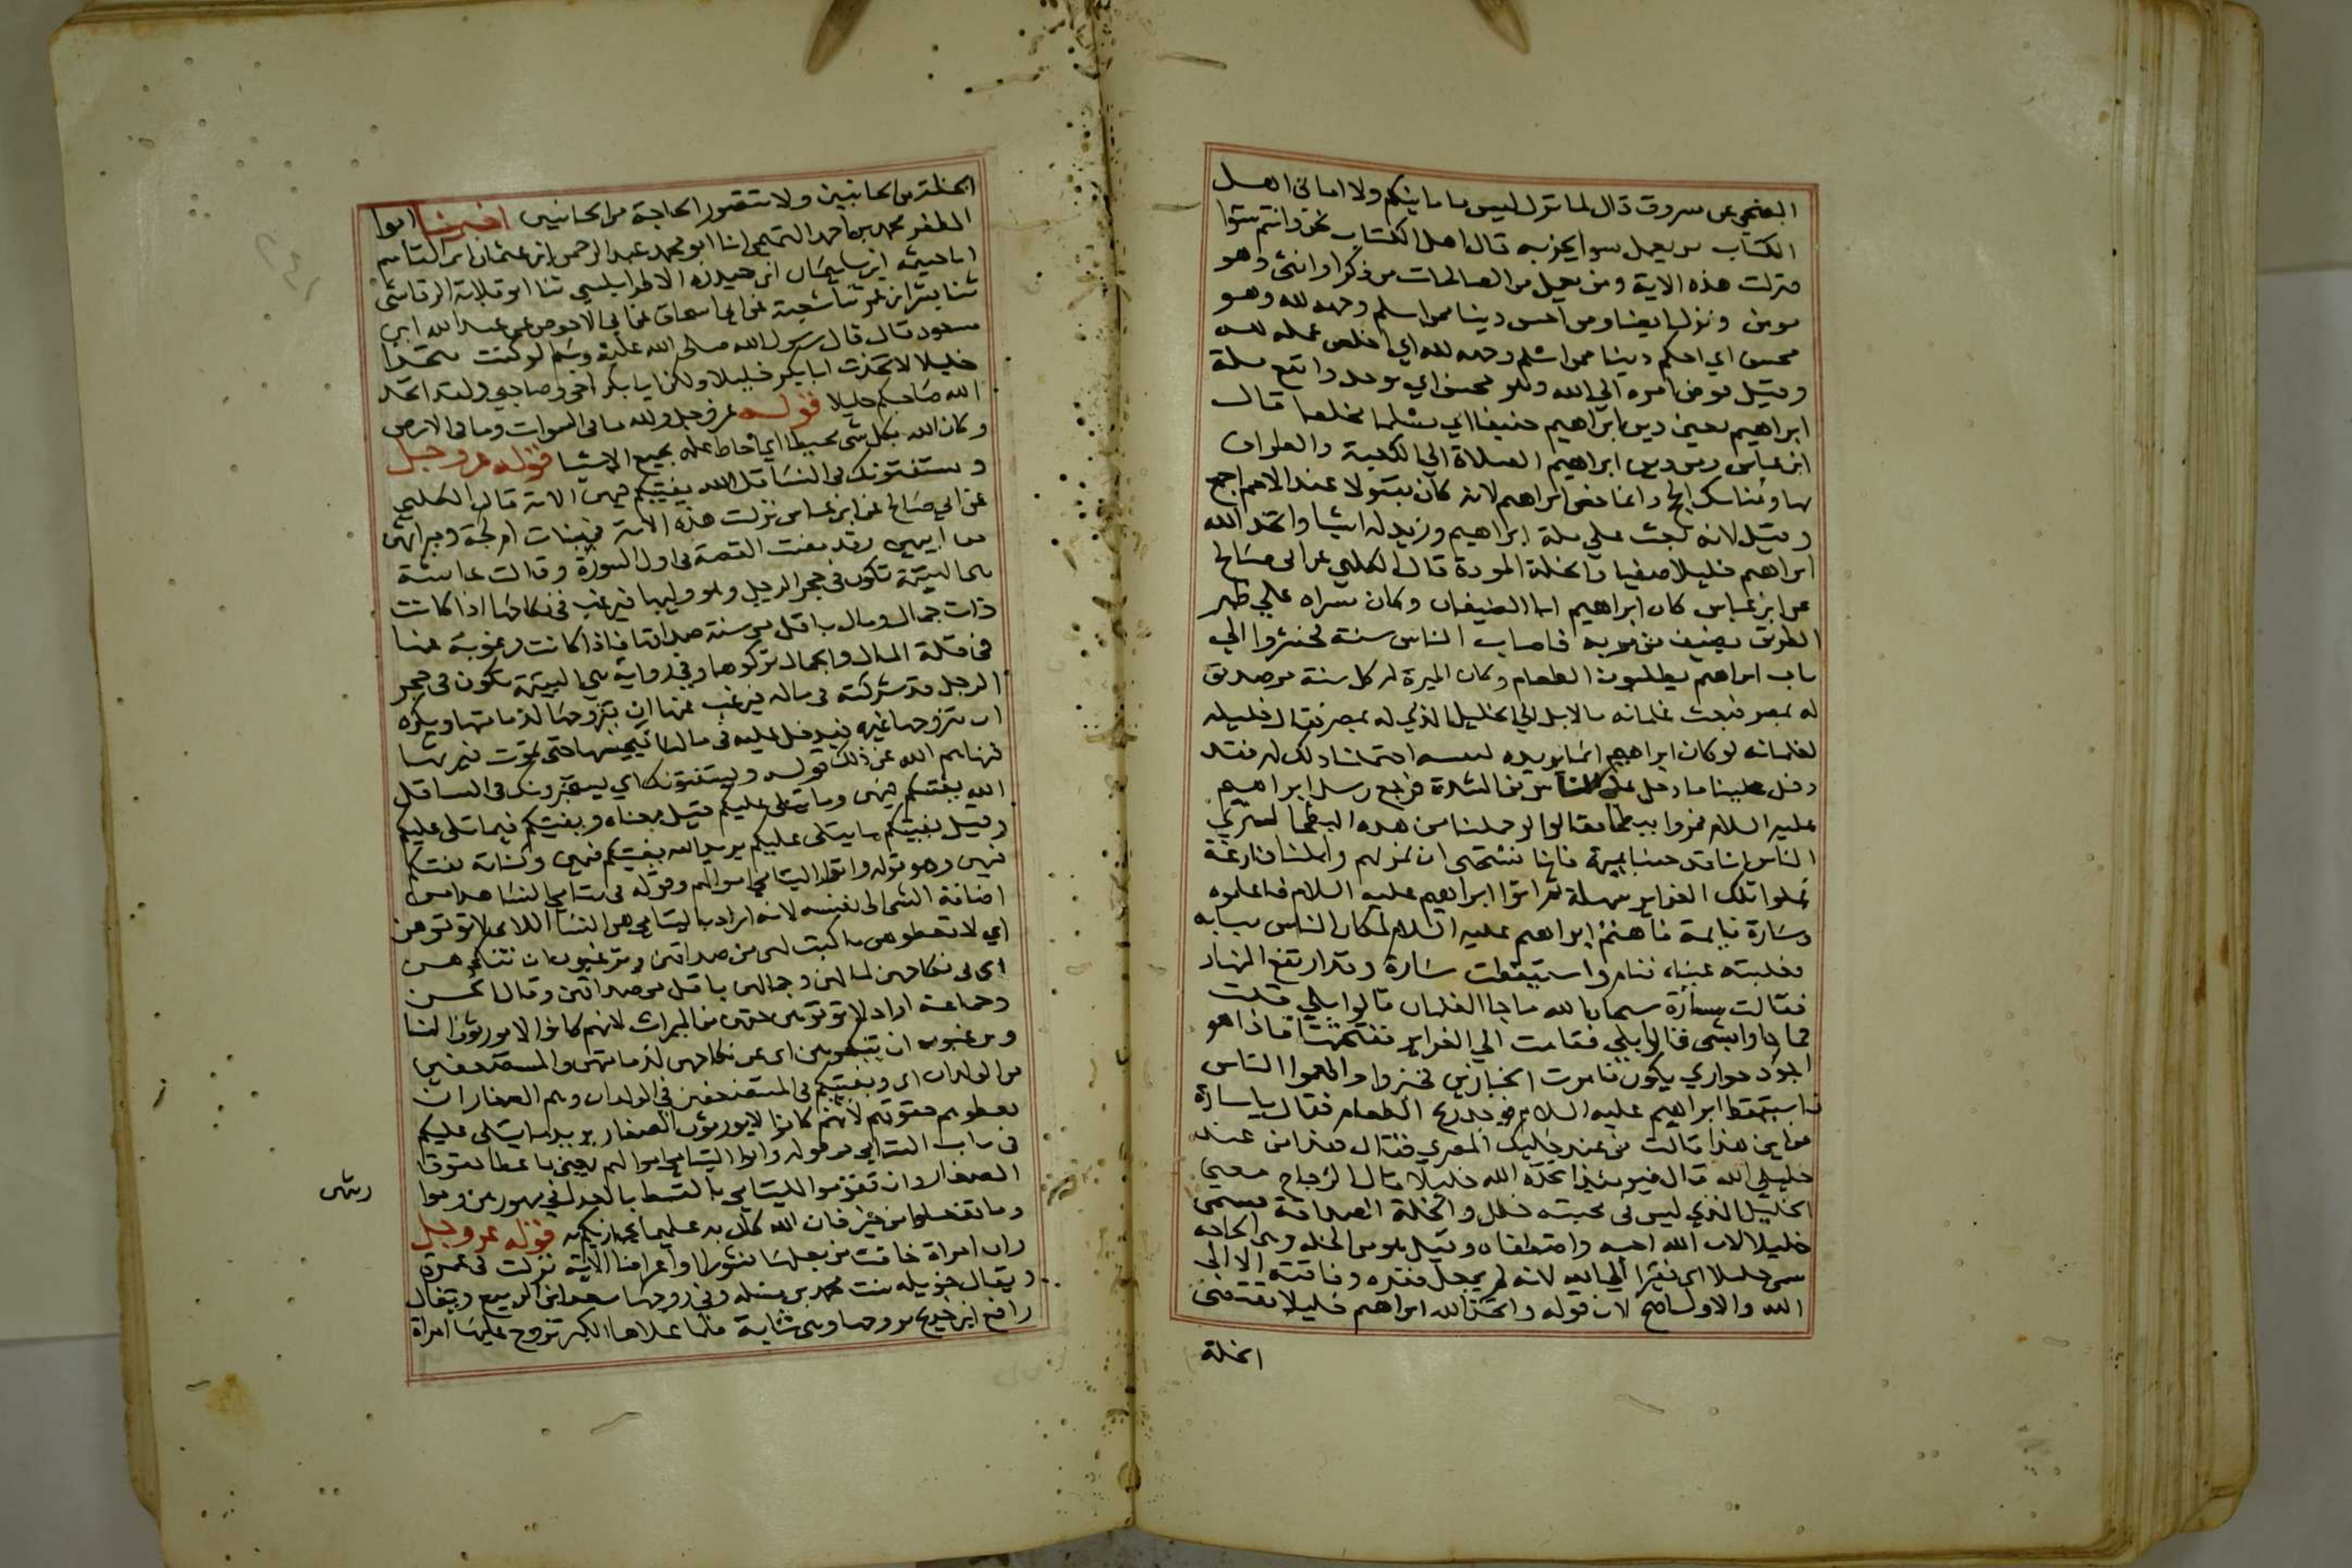 الضحي عن مسروق قال لما نزل ليس بامانيكم ولا اماني اهل
الكتاب من يعمل سوا يجز به قال اهل الكتاب نحن وانتم سوا
فنزلت هذه الاية ومن يعمل من الصالحات من ذكر او انثى وهو
مومن ونزل ايضا ومن احسن دينا ممن اسلم وجهه لله وهو
محسن اي احكم دينا ممن اسلم وجهه لله اي اخلص عمله لله
وقيل فوض امره الي الله وهو محسن اي موحد واتبع ملة
ابراهيم يعني دين ابراهيم حنيفا اي مسلما مخلصا قال
ابن عباس ومن دين ابراهيم الصلاة الي الكعبة والطواف
بها ومناسك الحج وانما خص ابراهيم لانه كان مقبولا عند الامم اجمع
وقيل لانه بعث علي ملة ابراهيم وزيد له اشيا واتخذ الله
ابراهيم خليلا صفيا والخلة المودة قال الكلبي عن ابي صالح
عن ابن عباس كان ابراهيم ابا الضيفان وكان منزله علي ظهر
الطريق يضيف من مر به فاصاب الناس سنة فحشروا الي
باب ابراهيم يطلبون الطعام وكان الميرة له كل سنة من صديق
له بمصر فبعث غلمانه بالابل الي الخليل الذي له بمصر فقال خليله
لغلمانه لو كان ابراهيم انما يريده لنفسه احتملنا ذلك له فقد
دخل علينا ما دخل علي الناس من الشدة فرجع رسل ابراهيم
عليه السلام فمروا ببطحا فقالوا لو حملنا من هذه البطحا ليري
الناس انا قد جينا بميرة فانا نستحي ان نمر بهم وابلنا فارغة
فملوا تلك الغراير سهلة ثم اتوا ابراهيم عليه السلام فاعلموه
وسارة نايمة فاهتم ابراهيم عليه السلام لمكان الناس ببابه
فغلبته عيناه فنام واستيقظت سارة وقد ارتفع النهار
فقالت سارة سبحان الله ما جا الغلمان قالوا بلي قالت
فما جاوا بشي قالوا بلي فقامت الي الغراير ففتحتها فاذا هو
اجود حواري يكون فامرت الخبازين فخبزوا واطعموا الناس
فاستيقظ ابراهيم عليه السلام فوجد ريح الطعام فقال يا سارة
من اين هذا قالت من عند خليلك المصري فقال هذا من عند
خليلي الله قال فيومئذ اتخذه الله خليلا قال الزجاج معني
الخليل الذي ليس في محبته خلل والخلة الصداقة فسمي
خليلا لان الله احبه واصطفاه وقيل هو من الخلة وهي الحاجة
سمي خليلا اي فقيرا الي الله لانه لم يجعل فقره وفاقته الا الي
الله والاول اصح لان قوله واتخذ الله ابراهيم خليلا يقتضي
الخلة
الخلة من الجانبين ولا تتصور الحاجة من الجانبين اخبرنا ابوا
المظفر محمد بن احمد التميمي انا ابو محمد عبد الرحمن ابن عثمان ابن القاسم
انا خيثمة ابن سليمان ابن حيدرة الاطرابلسي ثنا ابو قلابة الرقاشي
ثنا بشر ابن عمر ثنا شعبة عن ابي اسحاق عن ابي الاحوص عن عبد الله ابن
مسعود قال قال رسول الله صلى الله عليه وسلم لو كنت متخذا
خليلا لاتخذت ابا بكر خليلا ولكن ابا بكر اخي وصاحبي ولقد اتخذ
الله صاحبكم خليلا قوله عز وجل ولله ما في السموات وما في الارض
وكان الله بكل شي محيطا اي احاط علمه بجميع الاشيا قوله عز وجل
ويستفتونك في النسا قل الله يفتيكم فيهن الاية قال الكلبي
عن ابي صالح عن ابن عباس نزلت هذه الاية في بنات ام كجة وميراثهن
من ابيهن وقد مضت القصة في اول السورة وقالت عايشة
هي اليتيمة تكون في حجر الرجل وهو وليها فيرغب في نكاحها اذا كانت
ذات جمال ومال باقل من سنة صداقها فاذا كانت مرغوبة عنها
في قلة المال والجمال تركوها وفي رواية هي اليتيمة تكون في حجر
الرجل قد شركته في ماله فيرغب عنها ان يتزوجها لذمامتها ويكره
ان يتزوجها غيره فيدخل عليه في مالها فيحبسها حتي تموت فيرثها
فنهاهم الله عن ذلك قوله ويستفتونك اي يستخبرونك في النسا قل
الله يفتيكم فيهن وما يتلي عليكم قيل معناه ويفتيكم فيما يتلي عليكم
وقيل يفتيكم ما يتلي عليكم يريد الله يفتيكم فيهن وكتابه يفتيكم
فيهن وهو قوله واتوا اليتامي اموالهم وقوله في يتامي النسا هذا من
اضافة الشي الي نفسه لانه اراد باليتامي هن النسا اللاتي لا توتوهن
اي لا تعطوهن ما كتب لهن من صداقهن وترغبون ان تنكحوهن
اي في نكاحهن لمالهن وجمالهن باقل من صداقهن وقال الحسن
وجماعة اراد لا توتونهن حقهن من الميراث لانهم كانوا لا يورثون النسا
وترغبون ان تنكحوهن اي عن نكاحهن لذمامتهن والمستضعفين
من الولدان اي ويفتيكم في المستضعفين في الولدان وهم الصغار ان
تعطوهم حقوقهم لانهم كانوا لا يورثون الصغار يريد ما يتلي عليكم
في باب اليتامي من قوله واتوا اليتامي اموالهم يعني باعطا حقوق
الصغار وان تقوموا لليتامي بالقسط بالعدل في مهورهن ومواريثهن
وما تفعلوا من خير فان الله كان به عليما يجازيكم به قوله عز وجل
وان امراة خافت من بعلها نشوزا او اعراضا الاية نزلت في عمرة
ويقال خويلة بنت محمد بن مسلمة وفي زوجها سعد ابن الربيع ويقال
رافع ابن خديج تزوجها وهي شابة فلما علاها الكبر تزوج عليها امراة